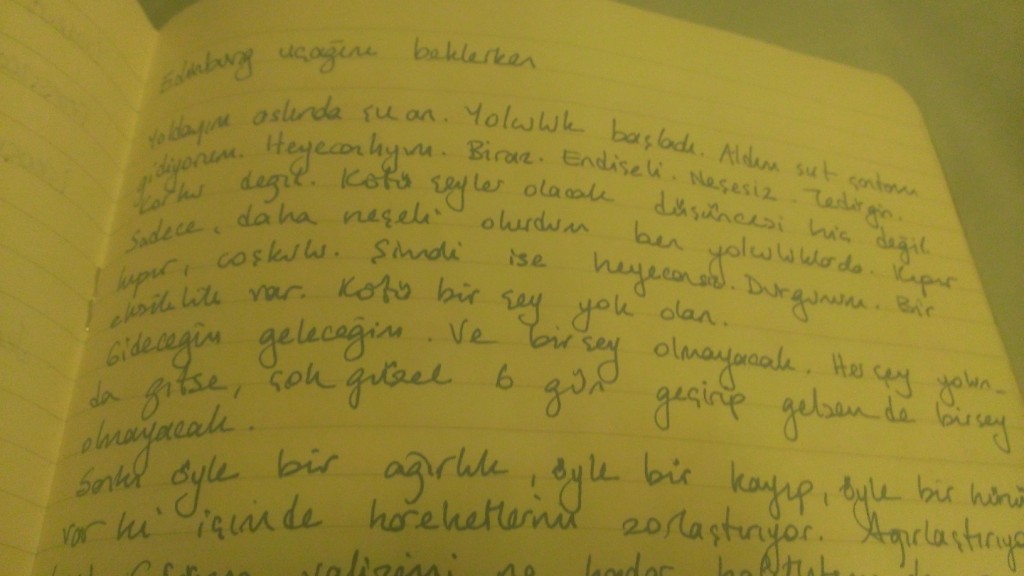 Edinburg uçağını beklerken
Yoldayım aslında şu an. Yolculuk başladı. Aldım sırt çantamı
gidiyorum. Heyecanlıyım. Biraz. Endişeli. Neşesiz. Tedirgin.
Korku değil. Kötü şeyler olacak düşüncesi hiç değil
Sadece, daha neşeli olurdum ben yolculuklarda. Kıpır
kıpır, coşkulu. Şimdi ise heyecansız. Durgunum. Bir
eksiklik var. Kötü bir şey yok olan.
Gideceğim geleceğim. Ve birşey olmayacak. Herşey yolun-
da gitse, çok güzel 6 gün geçirip gelsem de birşey
olmayacak.
Sanki öyle bir ağırlık, öyle bir kayıp, öyle bir
var ki içimde hareketlerimi zorlaştırıyor. Ağırlaştırıyo
valizimi ne kadar